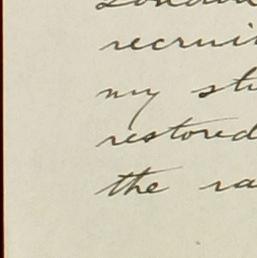 recrui
my st
restored
the ra